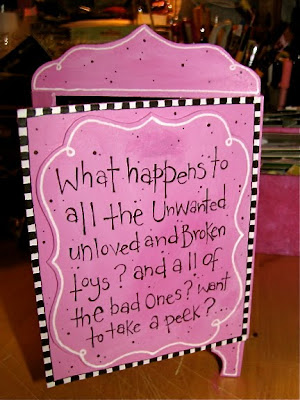 What happens to
all the Unwanted
unloved and Broken
toys? and all of
the bad Ones? want
to take a peek?...